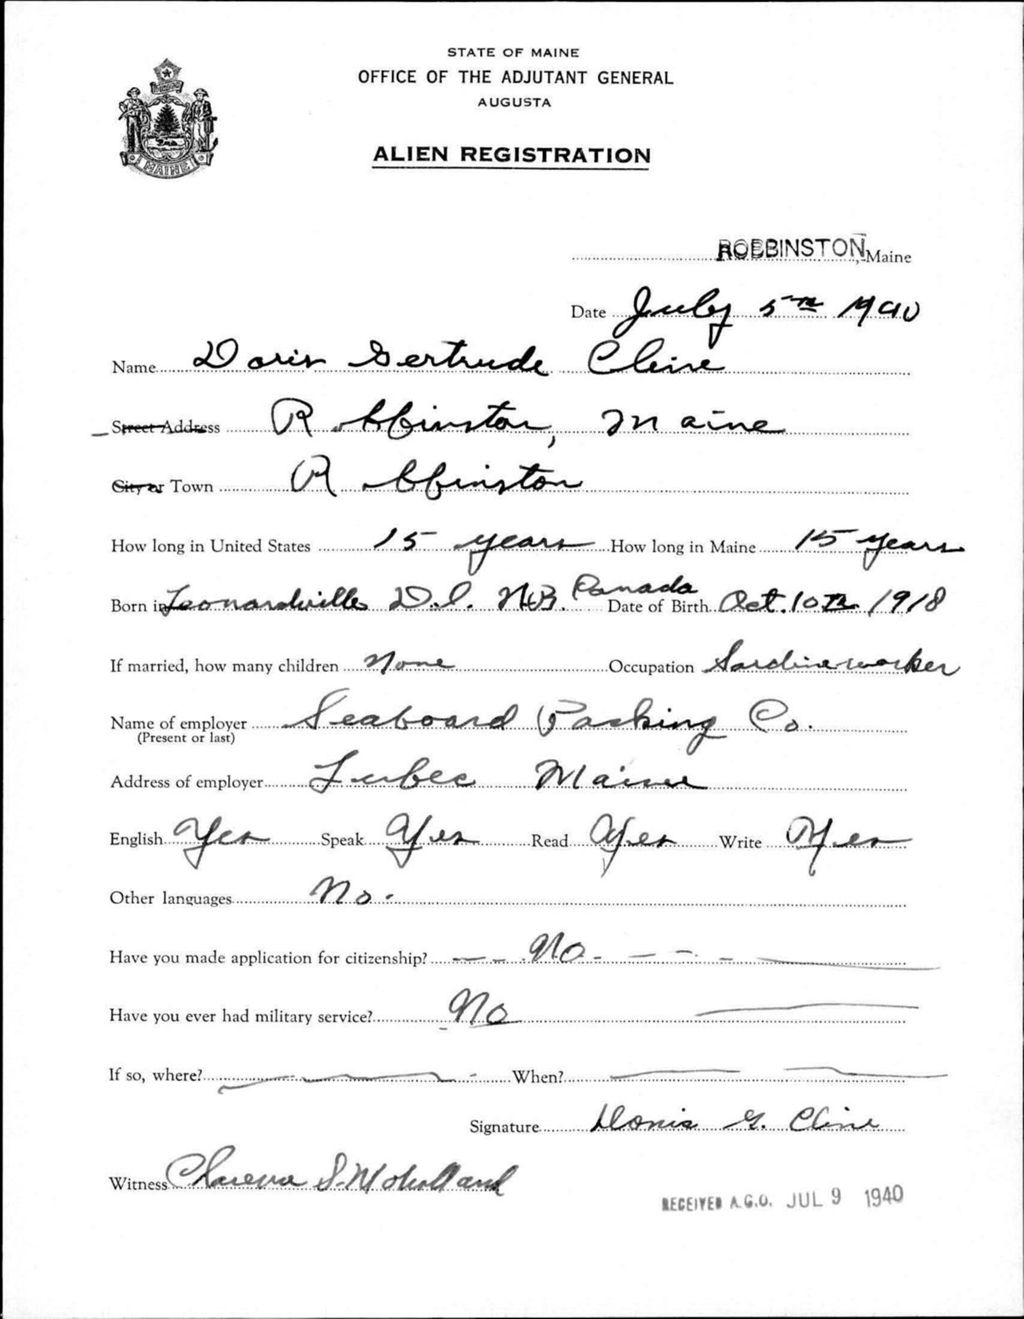 STATE OF MAINE
OFFICE OF THE ADJUTANT GENERAL
AUGUSTA
ALIEN REGISTRATION
MAINE
ROBBINSTON, Maine
Date July 5th 1940
Name Doris Gertrude Cline
Street Address Robbinston, Maine
City or Town Robbinston
How long in United States 15 years How long in Maine 15 years
Born in Leonardville D.I. N.B. Canada Date of Birth Oct. 10th 1918
If married, how many children None Occupation Sardine worker
Name of employer Seaboard Packing Co.
(Present or last)
Address of employer Lubec Maine
English Yes Speak Yes Read Yes Write Yes
Other languages No.
Have you made application for citizenship? No
Have you ever had military service? No
If so, where? When?
Signature Doris G. Cline
Witness Clarence S. Moholland
RECEIVED A.G.O. JUL 9 1940